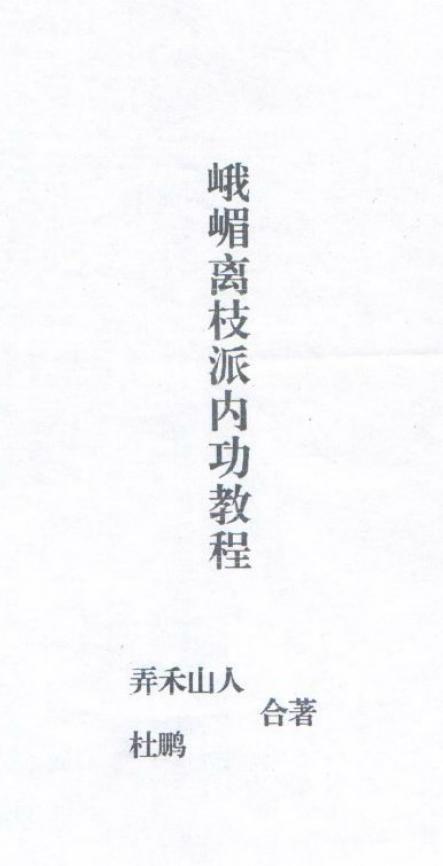 峨嵋离枝派内功教程
弄禾山人
杜鹏
合著